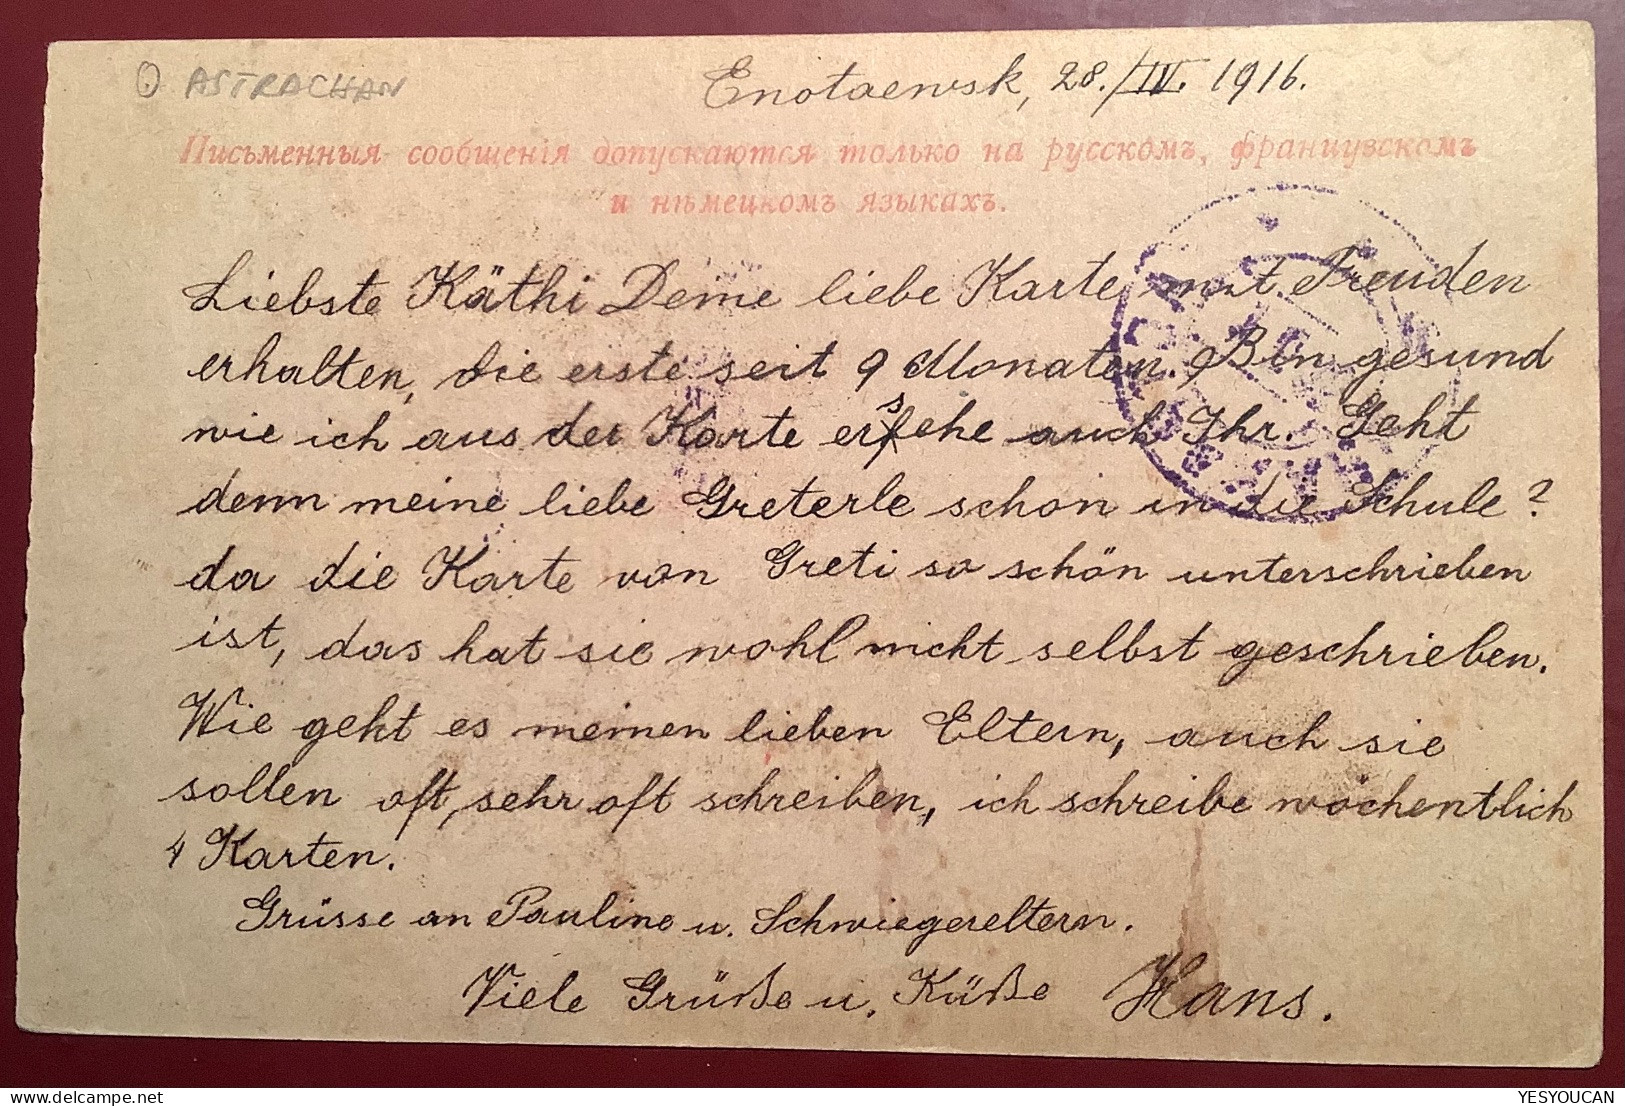 ASTRACHAN
Enotaewsk, 28./IV. 1916.
Письменныя сообщенія допускаются только на русскомъ, французскомъ
и нѣмецкомъ языкахъ.
Liebste Käthi Deine liebe Karte mit Freuden
erhalten, die erste seit 9 Monaten. Bin gesund
wie ich aus der Karte ersehe auch Ihr. Geht
denn meine liebe Greterle schon in die Schule?
da die Karte von Greti so schön unterschrieben
ist, das hat sie wohl nicht selbst geschrieben.
Wie geht es meinen lieben Eltern, auch sie
sollen oft, sehr oft schreiben, ich schreibe wöchentlich
4 Karten.
Grüsse an Pauline u. Schwiegereltern.
Viele Grüße u. Küße Hans.
YESYOUCAN